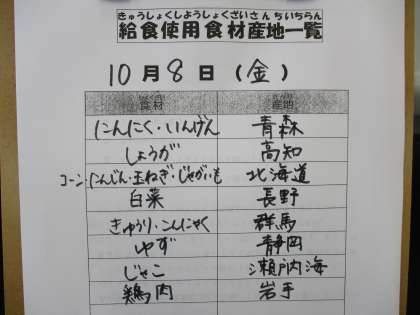 きゅうしょくしようしょくざいさんちいちらん
給食使用食材産地一覧
10月8日(金)
食材 産地
にんにく・いんげん 青森
しょうが 高知
コーン・にんじん・玉ねぎ・じゃがいも 北海道
白菜 長野
きゅうり・こんにゃく 群馬
ゆず 静岡
じゃこ 瀬戸内海
鶏肉 岩手